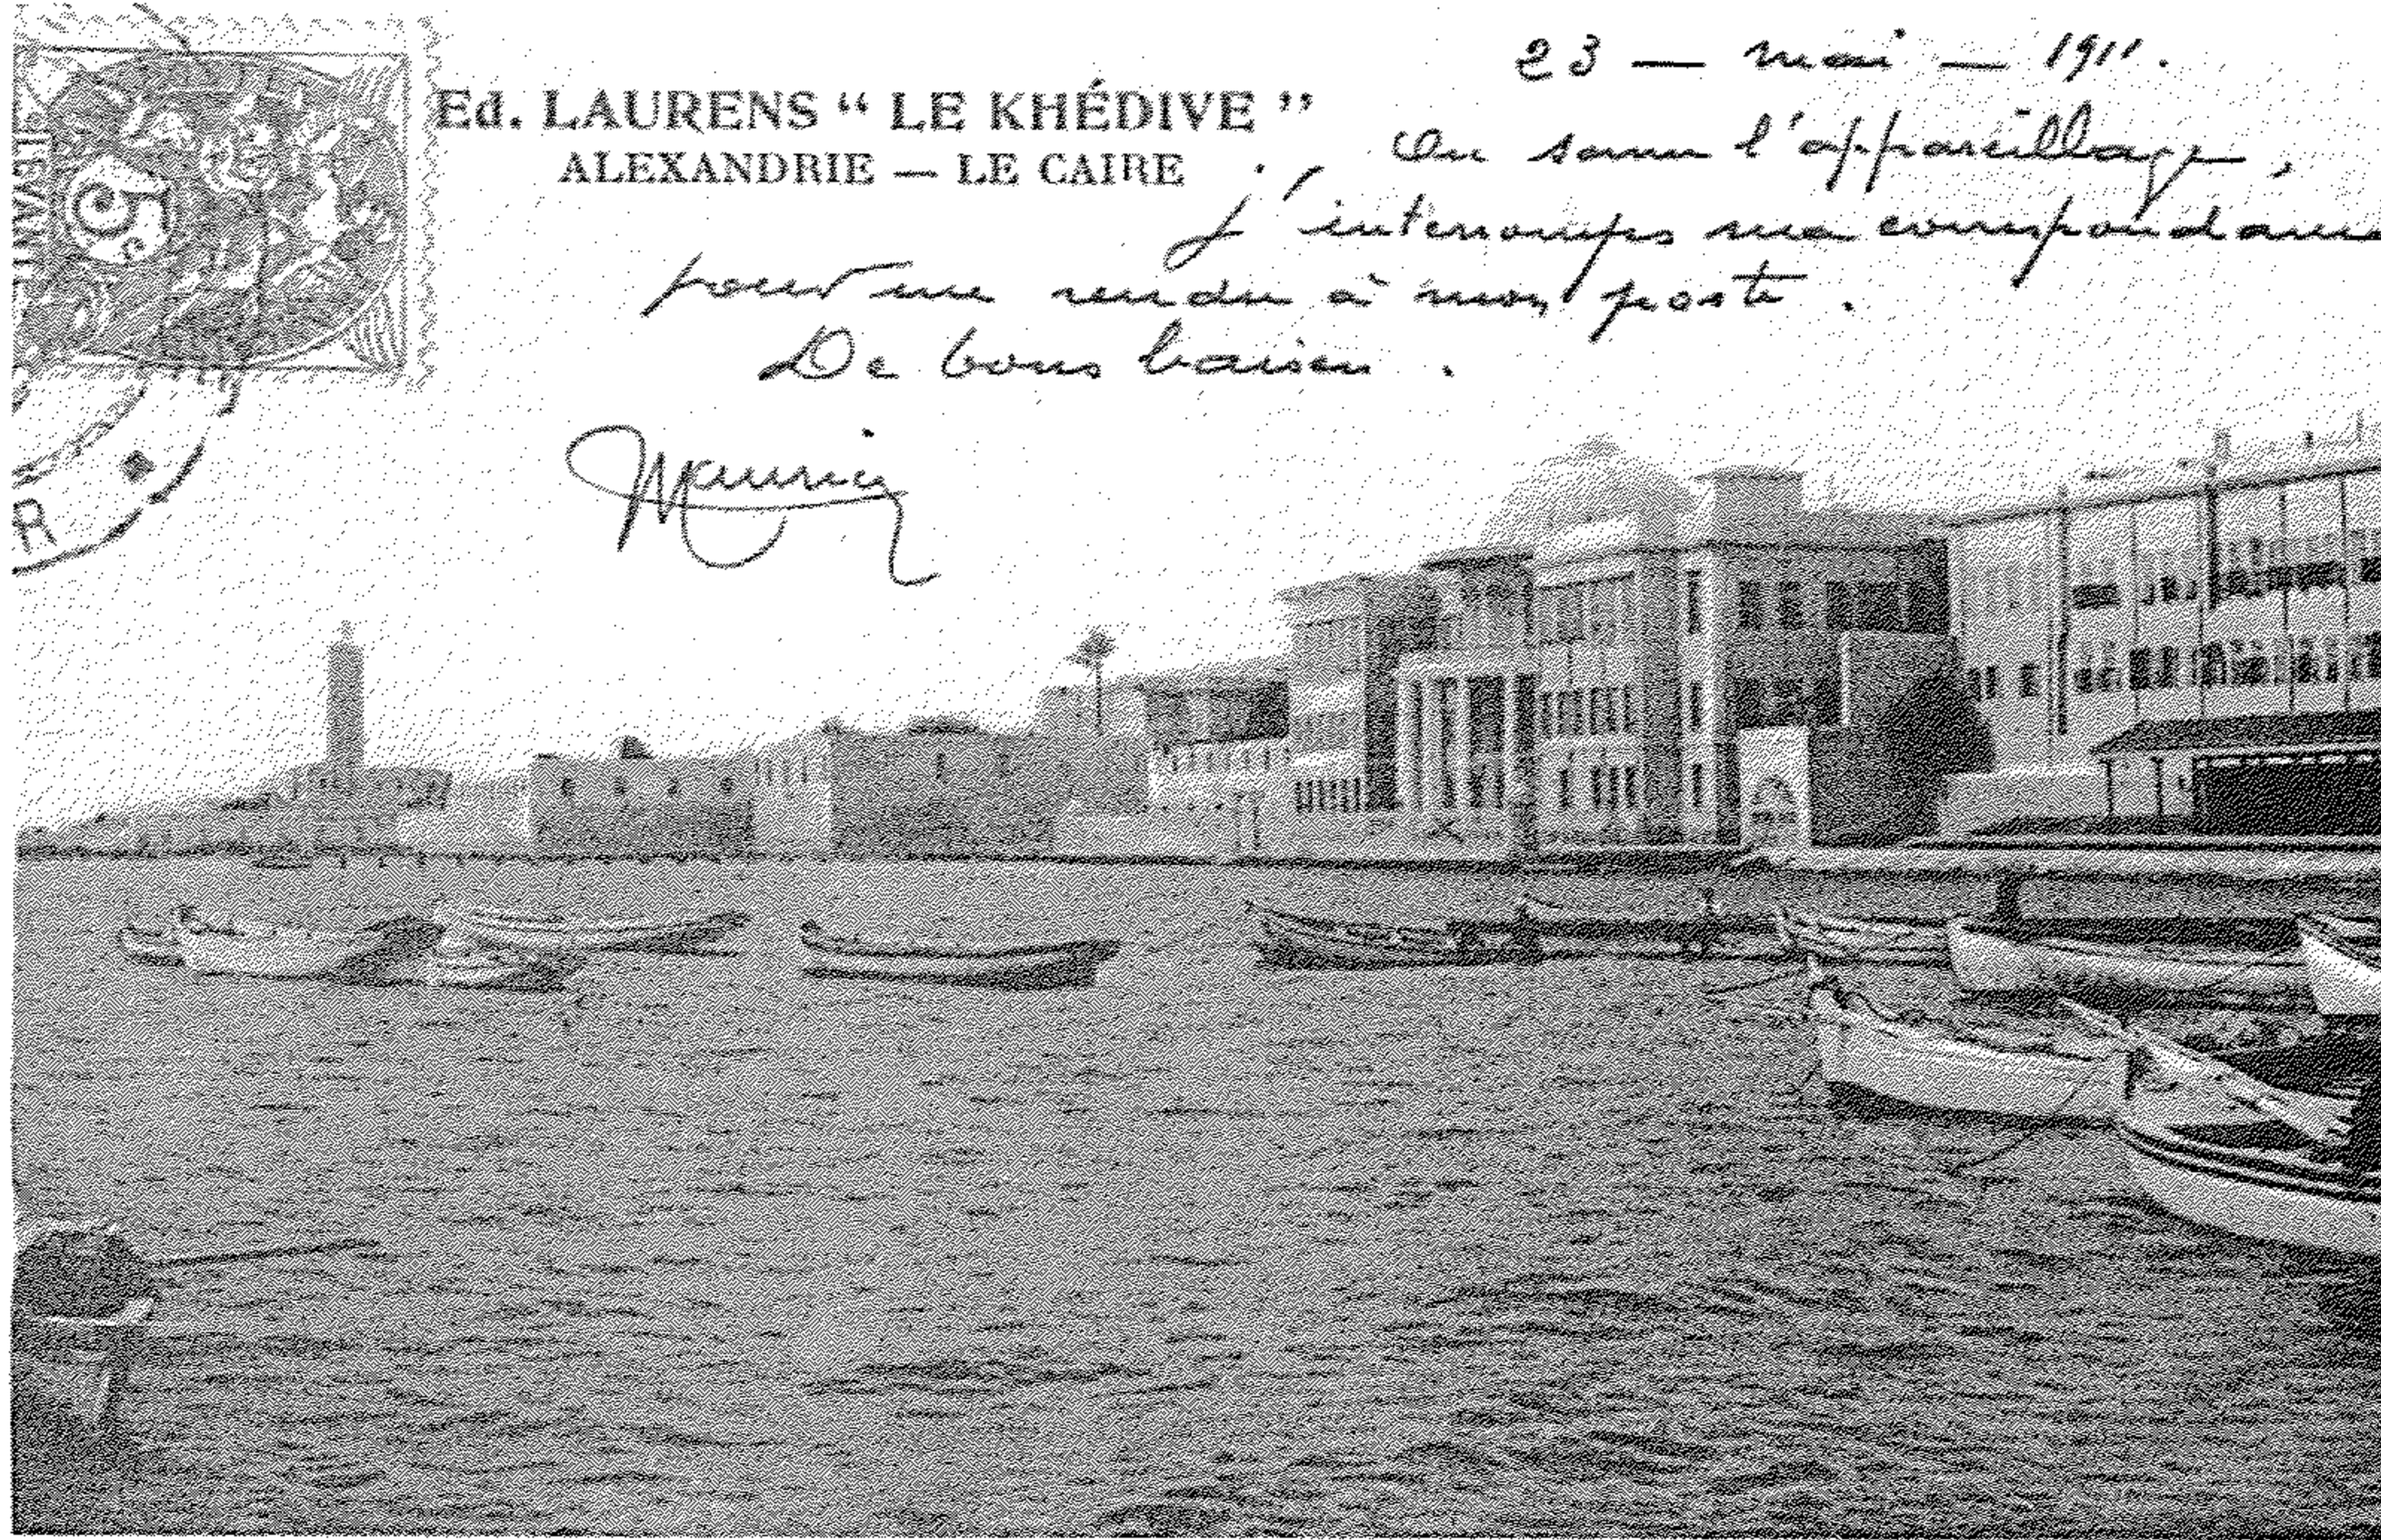 23 — mai — 1911.
Ed. LAURENS “ LE KHÉDIVE ”
ALEXANDRIE — LE CAIRE
On sonne l'appareillage,
j'interromps ma correspondance
pour me rendre à mon poste.
De bons baisers.
Maurice
LEVANT
5 c
R